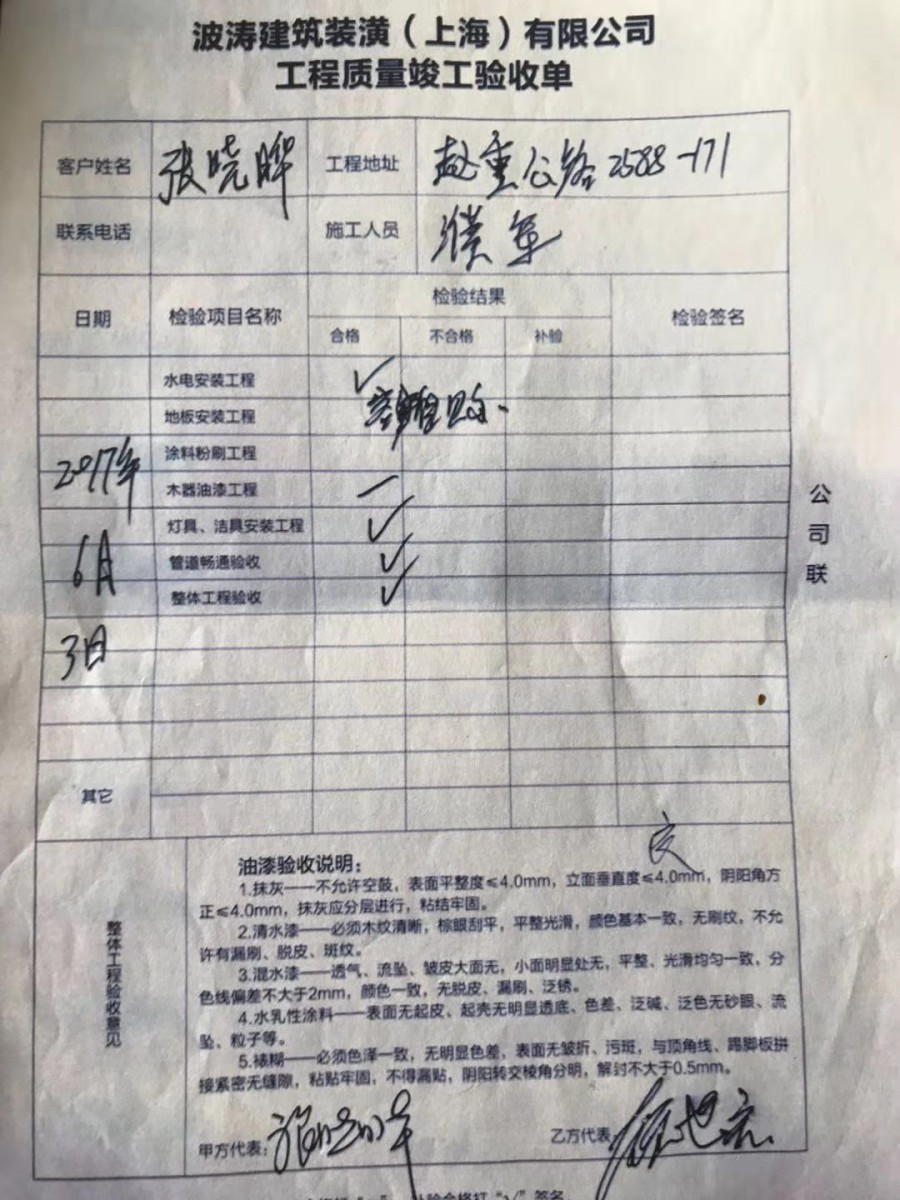 波涛建筑装潢（上海）有限公司
工程质量竣工验收单
客户姓名 张晓晔 工程地址 赵重公路2588-171
联系电话 施工人员 濮军
日期 检验项目名称 检验结果 检验签名
合格 不合格 补验
水电安装工程 ✓
地板安装工程
涂料粉刷工程
2017年
木器油漆工程 一
灯具、洁具安装工程 ✓
6月 管道畅通验收 ✓
整体工程验收 ✓
3日
公司联
其它
整体工程验收意见
油漆验收说明：
1.抹灰——不允许空鼓，表面平整度≤4.0mm，立面垂直度≤4.0mm，阴阳角方
正≤4.0mm，抹灰应分层进行，粘结牢固。
2.清水漆——必须木纹清晰，棕眼刮平，平整光滑，颜色基本一致，无刷纹，不允
许有漏刷、脱皮、斑纹。
3.混水漆——透气、流坠、皱皮大面无，小面明显处无，平整、光滑均匀一致，分
色线偏差不大于2mm，颜色一致，无脱皮、漏刷、泛锈。
4.水乳性涂料——表面无起皮、起壳无明显透底、色差、泛碱、泛色无砂眼、流
坠、粒子等。
5.裱糊——必须色泽一致，无明显色差，表面无皱折、污斑，与顶角线、踢脚板拼
接紧密无缝隙，粘贴牢固，不得漏贴，阴阳转交棱角分明，解封不大于0.5mm。
甲方代表：张晓晔 乙方代表